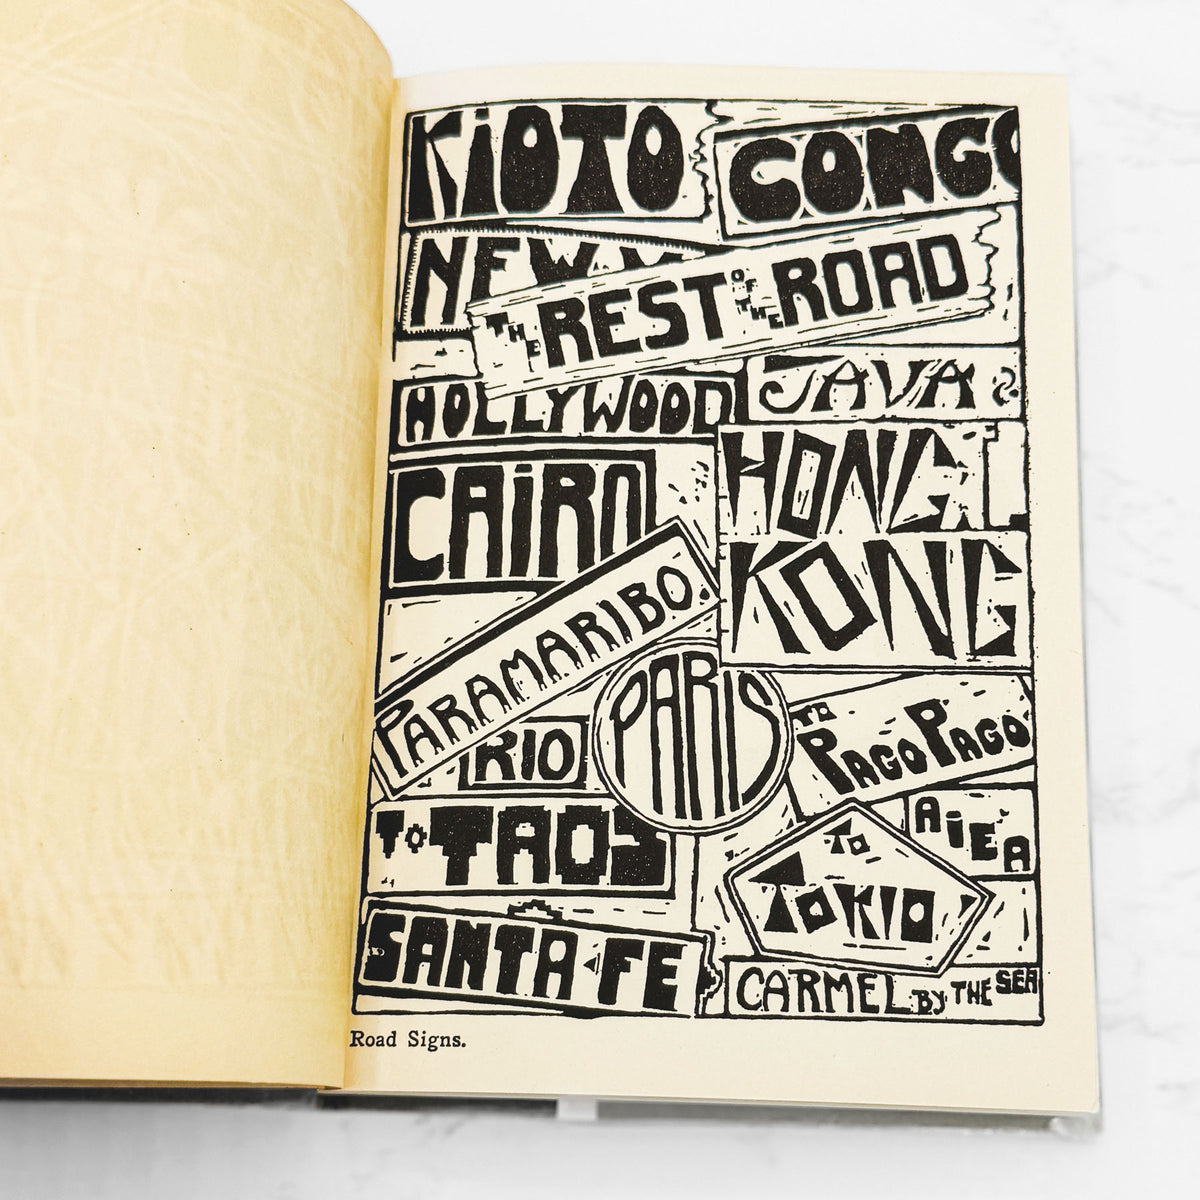 KiOTO
CONGO
NEW
THE REST OF THE ROAD
JAVA
HOLLYWOOD
HONG
KONG
CAiRO
PARAMARIBO.
PARIS
RIO
TO PAGO PAGO
TO TAOS
AiEA
TO
TOKIO
SANTA-FE
CARMEL BY THE SEA
Road Signs.